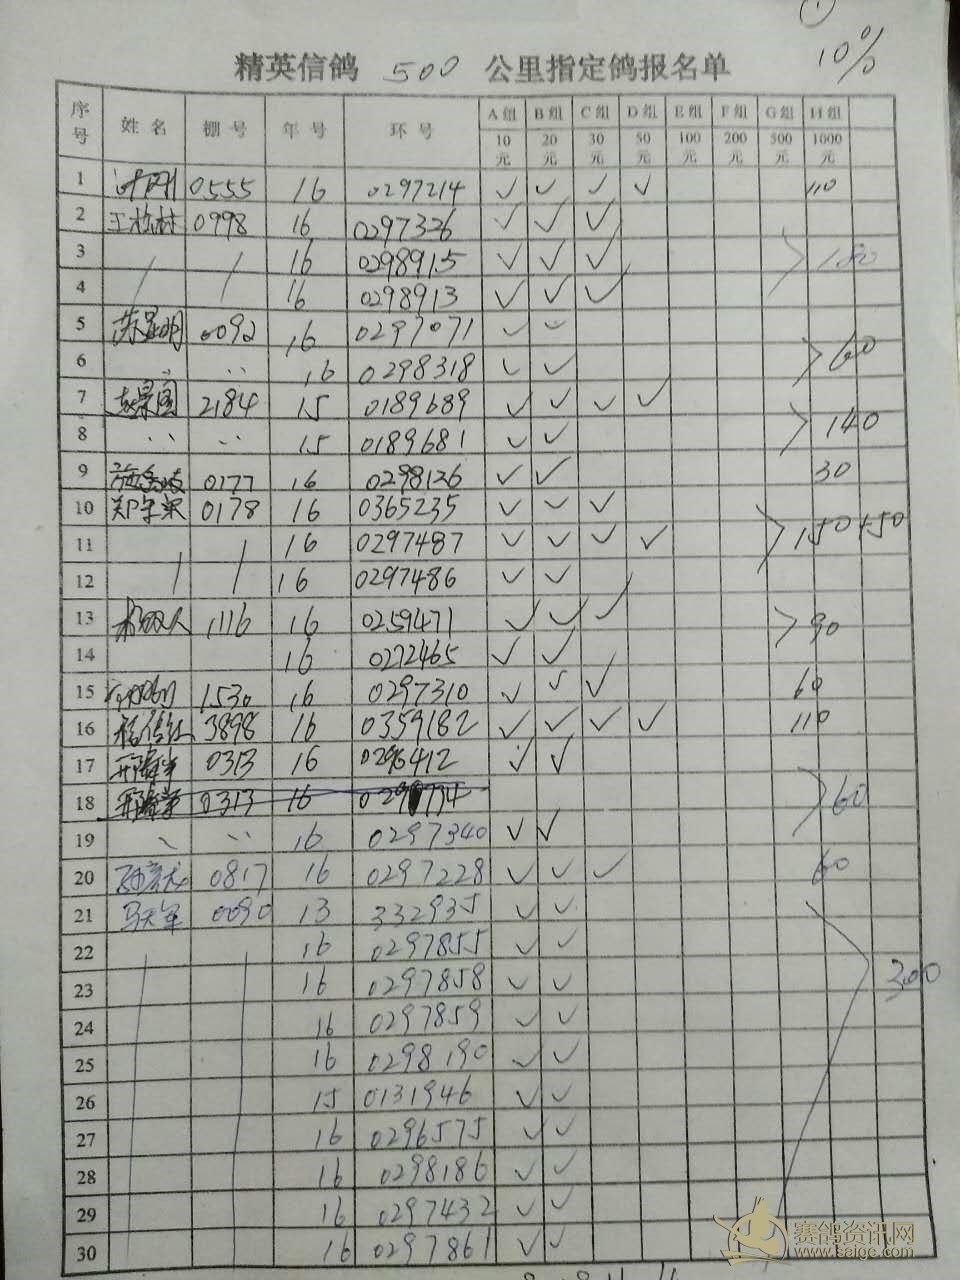 ①
10%
精英信鸽 500 公里指定鸽报名单
序号 姓名 棚号 年号 环号 A组 B组 C组 D组 E组 F组 G组 H组
10元 20元 30元 50元 100元 200元 500元 1000元
1 0555 16 0297214 ✓ ✓ ✓ ✓ 110
2 0998 16 0297326 ✓ ✓ ✓
3 / / 16 0298915 ✓ ✓ ✓ 180
4 / / 16 0298913 ✓ ✓ ✓
5 苏显明 0092 16 0297071 ✓ ✓
6 16 0298318 ✓ ✓ 60
7 2184 15 0189689 ✓ ✓ ✓ ✓
8 15 0189681 ✓ ✓ 140
9 0177 16 0298126 ✓ ✓ 30
10 0178 16 0365235 ✓ ✓ ✓
11 16 0297487 ✓ ✓ ✓ ✓ 150+50
12 16 0297486 ✓ ✓
13 1116 16 0259471 ✓ ✓ ✓ 90
14 16 0272465 ✓ ✓
15 1530 16 0297310 ✓ ✓ ✓ 60
16 3898 16 0359182 ✓ ✓ ✓ ✓ 110
17 0313 16 0296412 ✓ ✓
18 0313 16 60
19 16 0297340 ✓ ✓
20 0817 16 0297228 ✓ ✓ ✓ 60
21 0090 13 332935 ✓ ✓
22 16 0297855 ✓ ✓
23 16 0297858 ✓ ✓ 300
24 16 0297859 ✓ ✓
25 16 0298190 ✓ ✓
26 15 0131946 ✓ ✓
27 16 0296575 ✓ ✓
28 16 0298186 ✓ ✓
29 16 0297432 ✓ ✓
30 16 0297861 ✓ ✓
赛鸽资讯网
www.saige.com